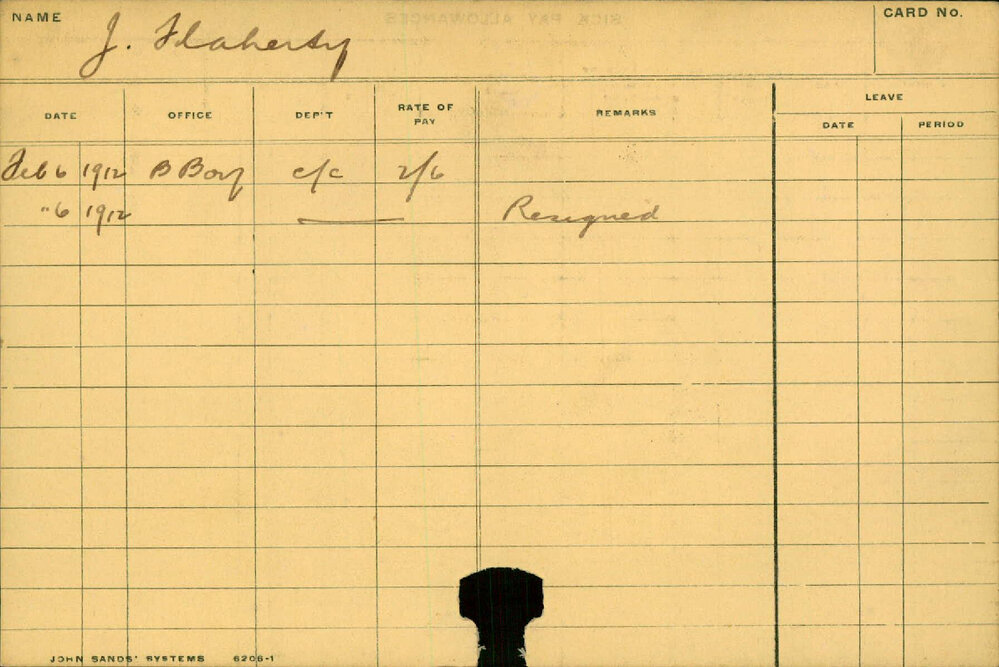 NAME J. Flaherty CARD No.
DATE OFFICE DEP'T RATE OF PAY REMARKS LEAVE
DATE PERIOD
Feb 6 1912 B Boy c/c 2/6
" 6 1912 Resigned
JOHN SANDS' SYSTEMS 6206-1